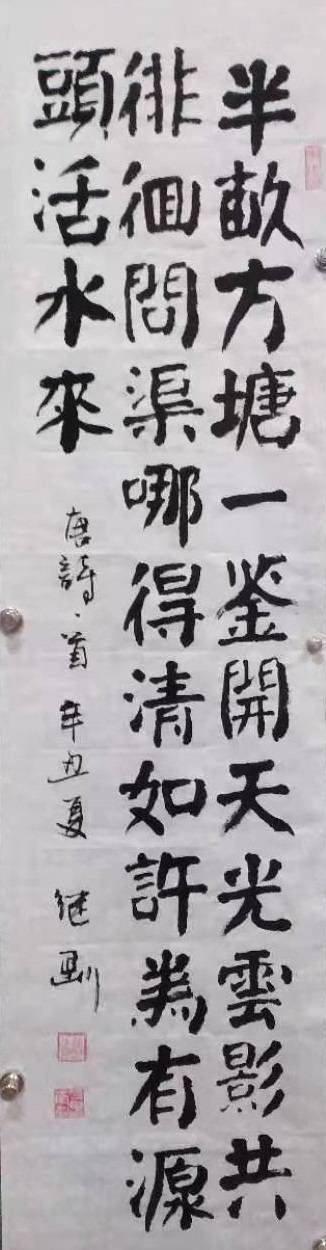 半畝方塘一鉴開天光雲影共
徘徊問渠哪得清如許為有源
頭活水來
唐詩一首 辛丑夏 继